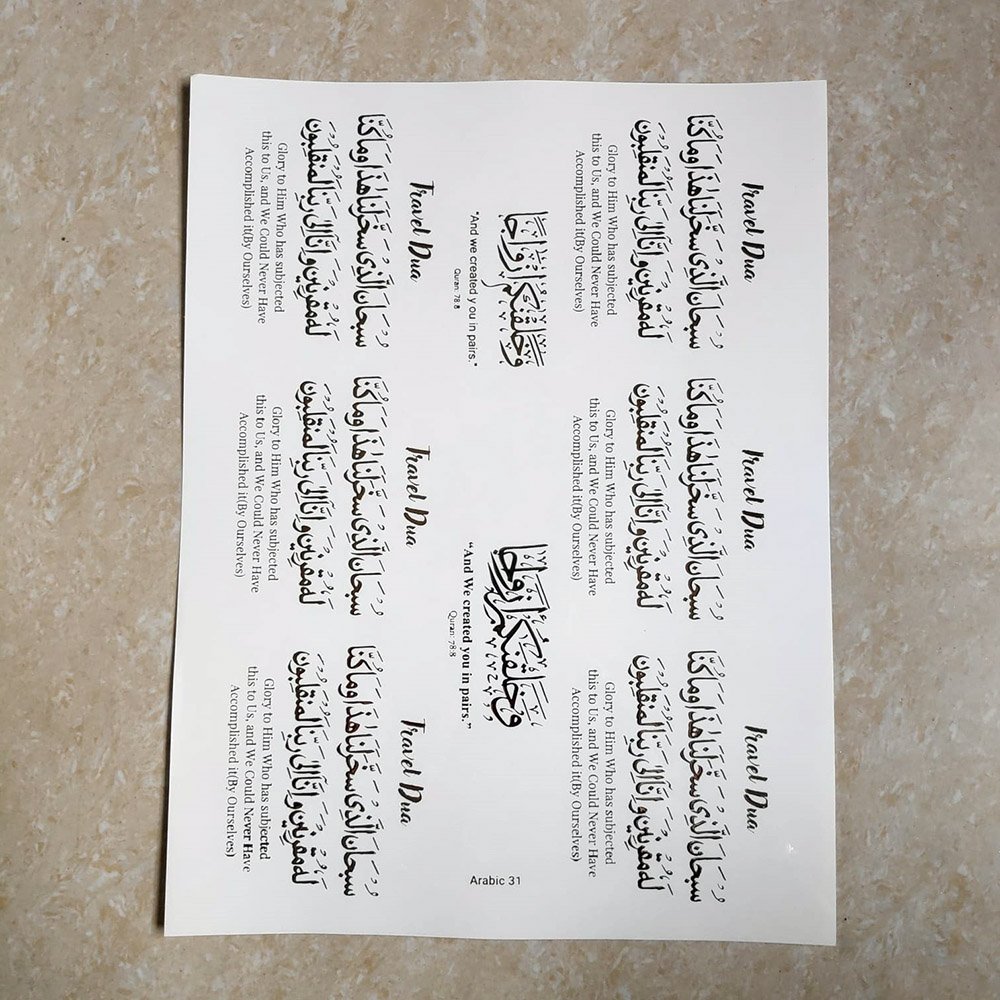 Travel Dua
سُبْحَانَ الَّذِي سَخَّرَ لَنَا هَٰذَا وَمَا كُنَّا
لَهُ مُقْرِنِينَ وَإِنَّا إِلَىٰ رَبِّنَا لَمُنْقَلِبُونَ
Glory to Him Who has subjected
this to Us, and We Could Never Have
Accomplished it(By Ourselves)
Travel Dua
سُبْحَانَ الَّذِي سَخَّرَ لَنَا هَٰذَا وَمَا كُنَّا
لَهُ مُقْرِنِينَ وَإِنَّا إِلَىٰ رَبِّنَا لَمُنْقَلِبُونَ
Glory to Him Who has subjected
this to Us, and We Could Never Have
Accomplished it(By Ourselves)
Travel Dua
سُبْحَانَ الَّذِي سَخَّرَ لَنَا هَٰذَا وَمَا كُنَّا
لَهُ مُقْرِنِينَ وَإِنَّا إِلَىٰ رَبِّنَا لَمُنْقَلِبُونَ
Glory to Him Who has subjected
this to Us, and We Could Never Have
Accomplished it(By Ourselves)
وَخَلَقْنٰكُمْ اَزْوَاجًا
"And we created y ou in pairs."
Quran: 78:8
وَخَلَقْنٰكُمْ اَزْوَاجًا
“And We created you in pairs.”
Quran: 78:8
Arabic 31
Travel Dua
سُبْحَانَ الَّذِي سَخَّرَ لَنَا هَٰذَا وَمَا كُنَّا
لَهُ مُقْرِنِينَ وَإِنَّا إِلَىٰ رَبِّنَا لَمُنْقَلِبُونَ
Glory to Him Who has subjected
this to Us, and We Could Never Have
Accomplished it(By Ourselves)
Travel Dua
سُبْحَانَ الَّذِي سَخَّرَ لَنَا هَٰذَا وَمَا كُنَّا
لَهُ مُقْرِنِينَ وَإِنَّا إِلَىٰ رَبِّنَا لَمُنْقَلِبُونَ
Glory to Him Who has subjected
this to Us, and We Could Never Have
Accomplished it(By Ourselves)
Travel Dua
سُبْحَانَ الَّذِي سَخَّرَ لَنَا هَٰذَا وَمَا كُنَّا
لَهُ مُقْرِنِينَ وَإِنَّا إِلَىٰ رَبِّنَا لَمُنْقَلِبُونَ
Glory to Him Who has subjected
this to Us, and We Could Never Have
Accomplished it(By Ourselves)